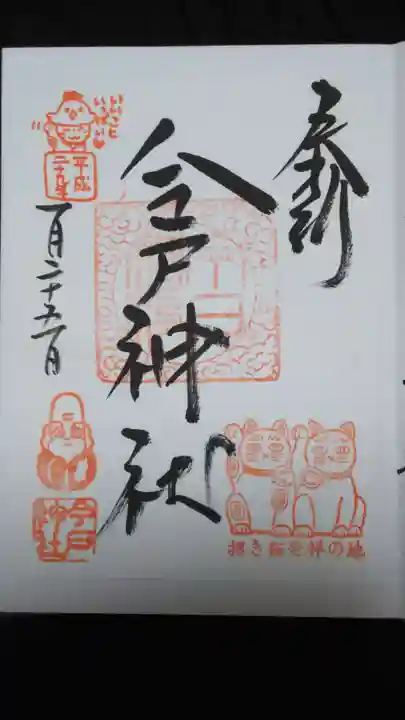 奉拝
今戸神社
招き猫発祥の地
いいこと
いっぱい
平成
二十九年
一月二十五日
今戸
神社